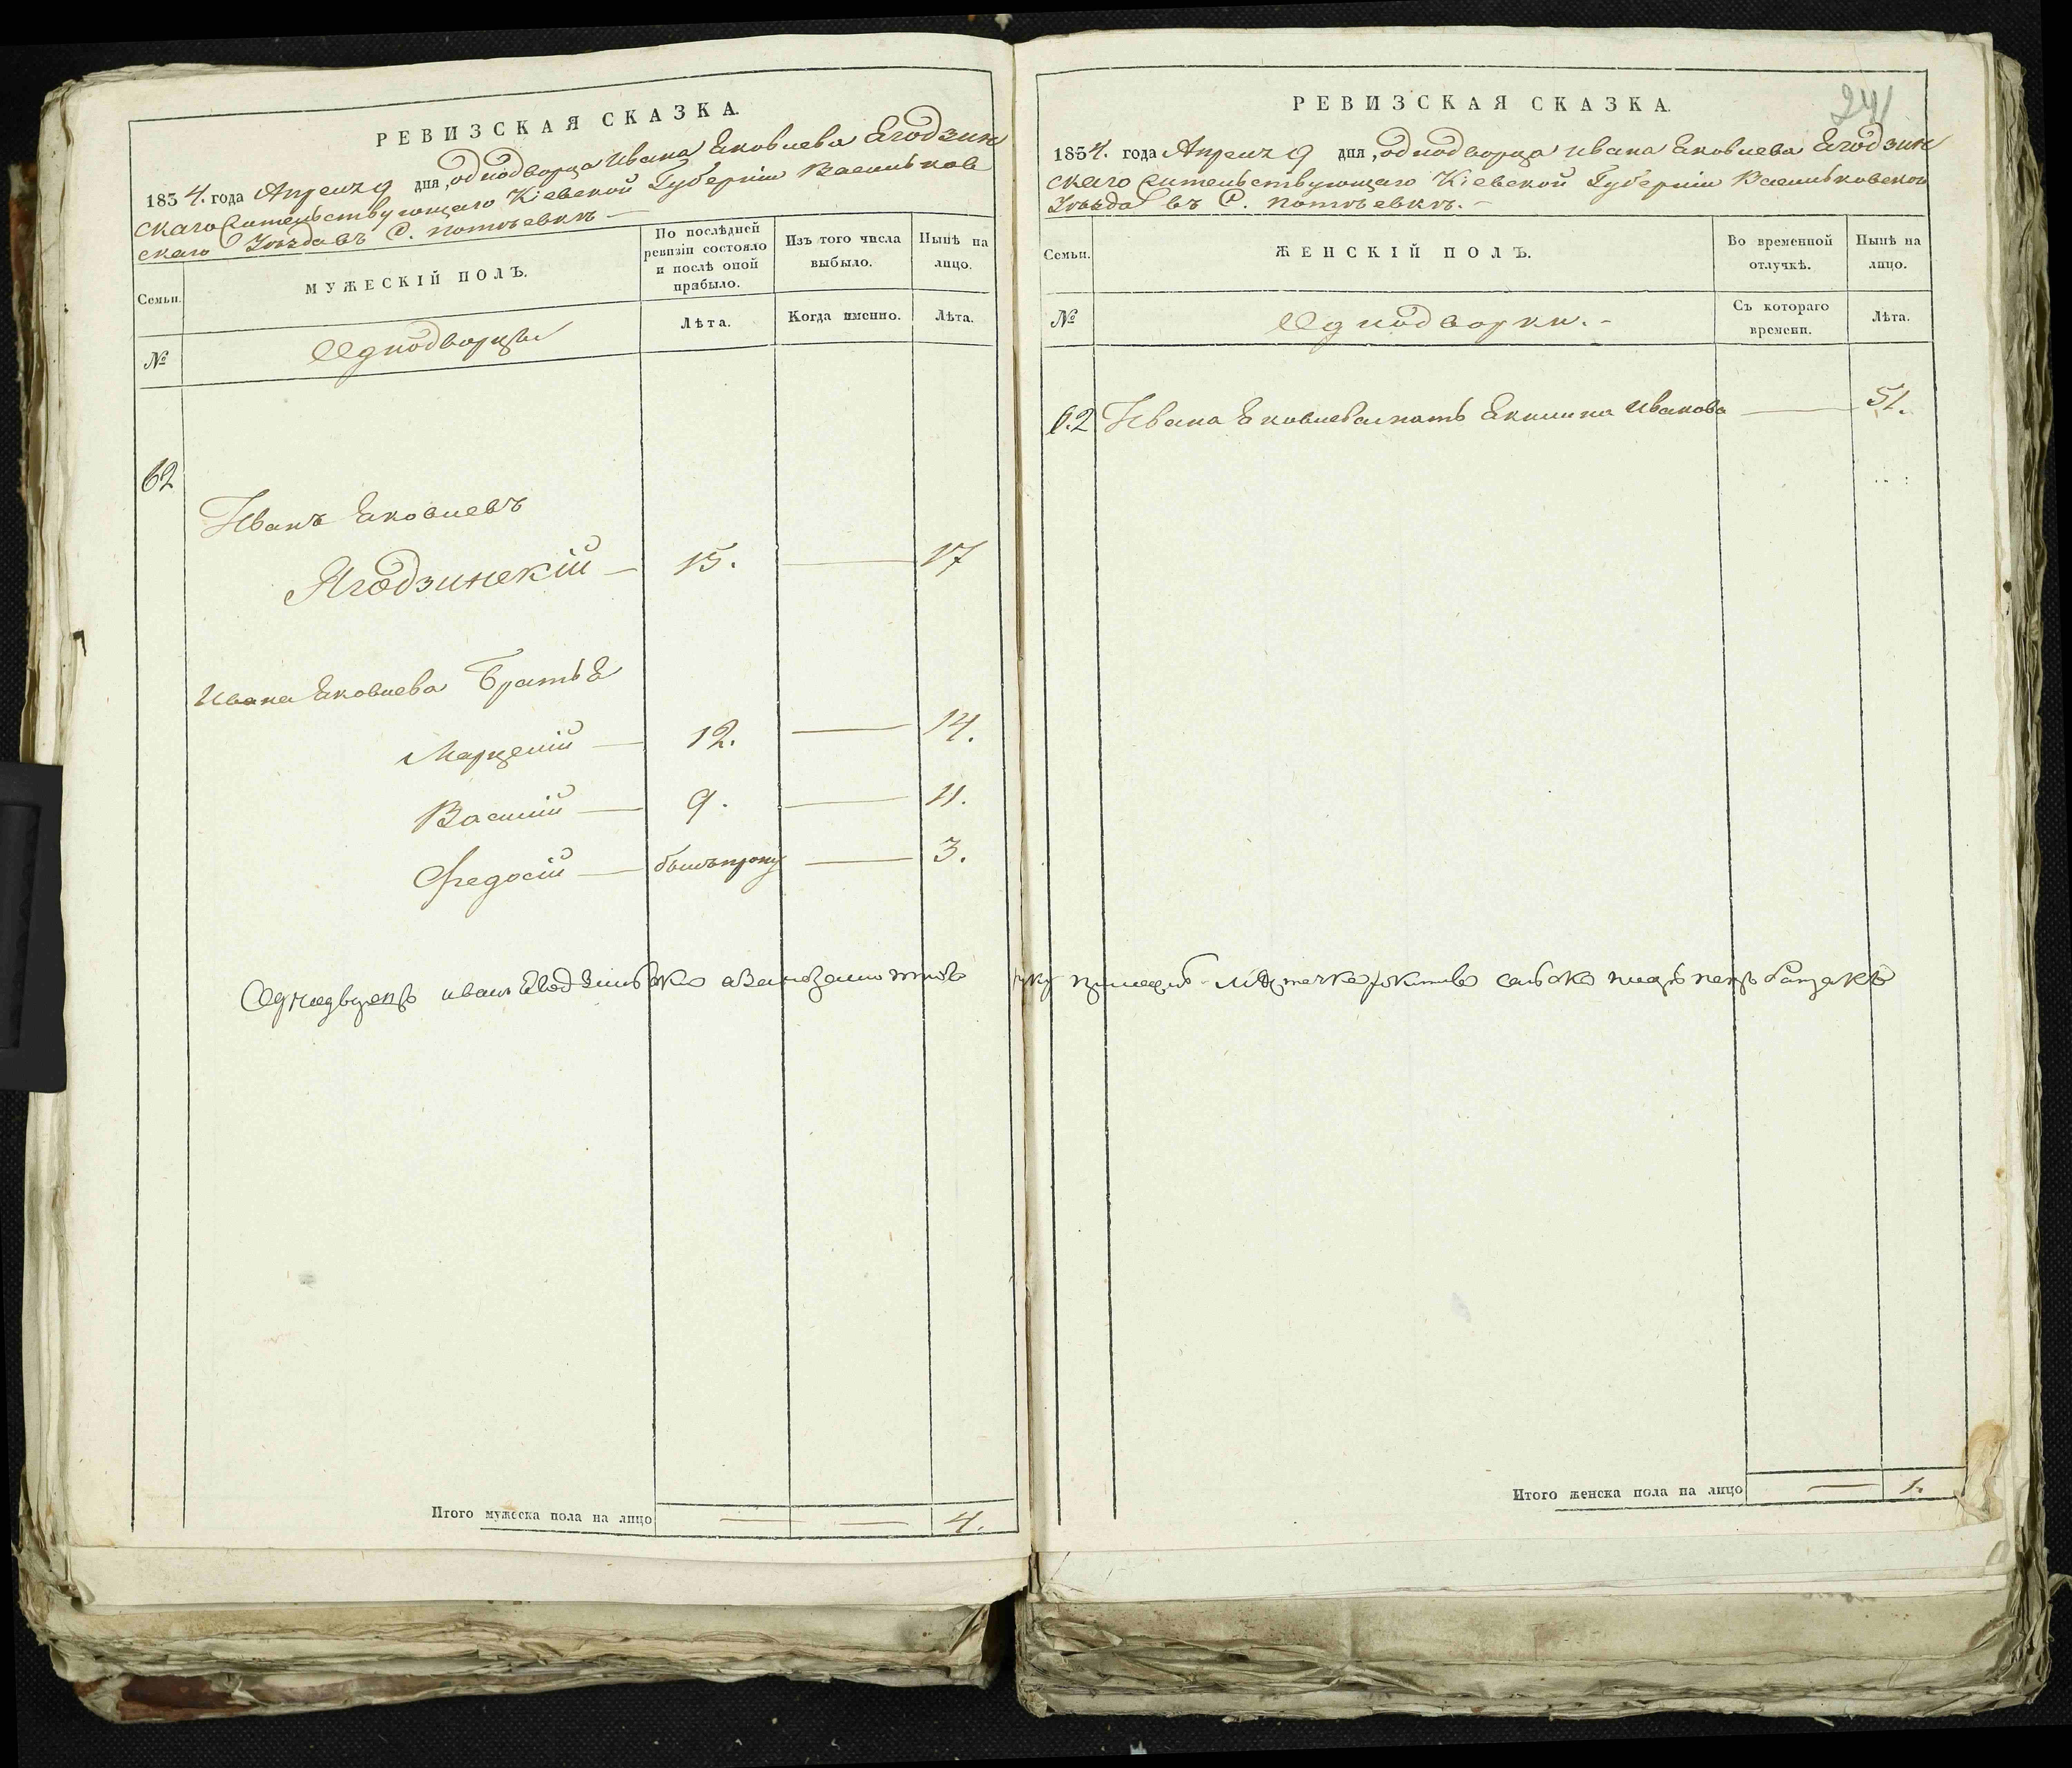 РЕВИЗСКАЯ СКАЗКА.
1854. года Апреля 9 дня, однодворца Ивана Яковлева Ягодзин
скаго жительствующаго Кіевской Губерніи Васильков
скаго Уѣзда въ С. потоевкѣ. —
Семьи.
МУЖЕСКІЙ ПОЛЪ.
По послѣдней ревизіи состояло и послѣ оной прибыло.
Изъ того числа выбыло.
Нынѣ на лицо.
№
Однодворцы
Лѣта.
Когда именно.
Лѣта.
62
Иванъ Яковлевъ
Ягодзинскій — 15. — 17
Ивана Яковлева Братья
Марцелій — 12. — 14.
Василій — 9. — 11.
Федосій — былъ — 3.
Итого мужеска пола на лицо — — 4.
241
РЕВИЗСКАЯ СКАЗКА.
1854. года Апреля 9 дня, однодворца Ивана Яковлева Ягодзин
скаго жительствующаго Кіевской Губерніи Васильковскаго
Уѣзда въ С. потоевкѣ. —
Семьи.
ЖЕНСКІЙ ПОЛЪ.
Во временной отлучкѣ.
Нынѣ на лицо.
№
Однодворки. —
Съ котораго времени.
Лѣта.
62 Ивана Яковлева мать Иванова — 51.
Однодворецъ иванъ
Итого женска пола на лицо — 1.